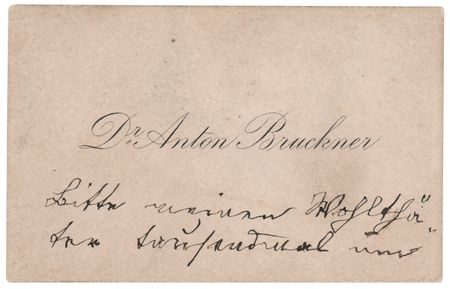 Dr. Anton Bruckner
Bitte meinen Wohlthä-
ter tausendmal um